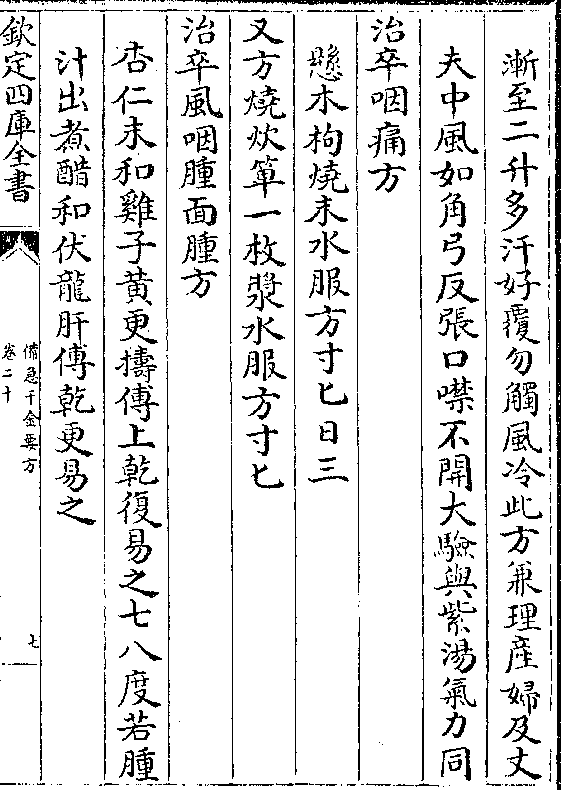 漸至二升多汗好覆勿觸風冷此方兼理産婦及丈
夫中風如角弓反張口噤不開大驗與紫湯氣力同
治卒咽痛方
懸木枸燒末水服方寸匕日三
又方燒炊箄一枚漿水服方寸匕
治卒風咽腫面腫方
杏仁末和雞子黄更擣傅上乾復易之七八度若腫
汁出煮醋和伏龍肝傅乾更易之
欽定四庫全書
備急千金要方
卷二十
七